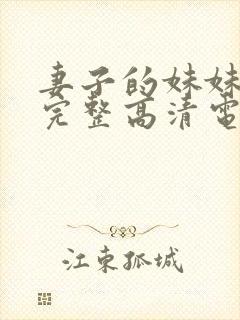 妻子的妹妹
完整高清電
江東孤城